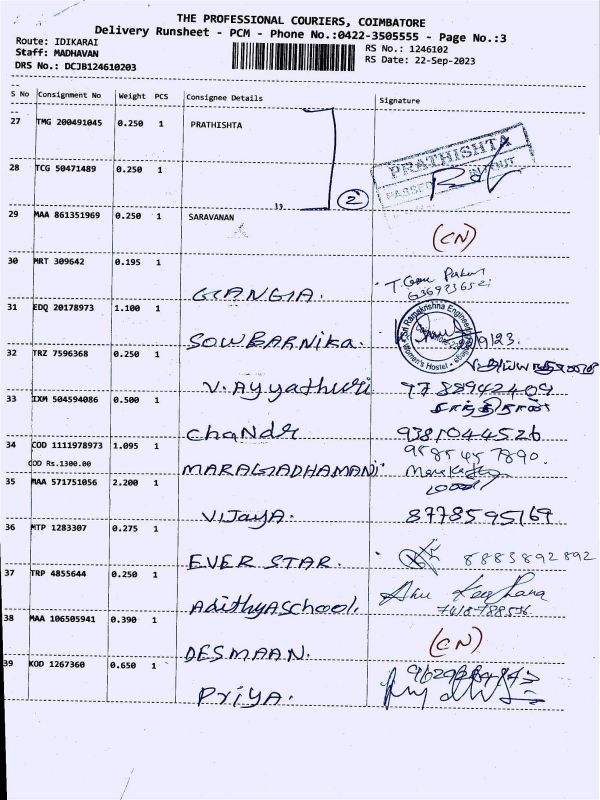 THE PROFESSIONAL COURIERS, COIMBATORE
Delivery Runsheet - PCM - Phone No.:0422-3505555 - Page No.:3
Route: IDIKARAI
RS No.: 1246102
Staff: MADHAVAN
RS Date: 22-Sep-2023
DRS No.: DCJB124610203
S No Consignment No Weight PCS Consignee Details Signature
27 TMG 200491045 0.250 1 PRATHISHTA
PRATHISHTA
PASSED
28 TCG 50471489 0.250 1
2
29 MAA 861351969 0.250 1 SARAVANAN
(CN)
30 MRT 309642 0.195 1
GANGA.
31 EDQ 20178973 1.100 1
SOWBARNIKA.
Sri Ramakrishna Engineering
Women's Hostel
32 TRZ 7596368 0.250 1
V. Ayyathuri 9788942409
33 IXM 504594086 0.500 1
Chandr 9381044526
34 COD 1111978973 1.095 1
9585457890.
COD Rs.1300.00
MARAGADHAMANI
35 MAA 571751056 2.200 1
VIJAYA. 8778595169
36 MTP 1283307 0.275 1
EVER STAR. 8883892892
37 TRP 4855644 0.250 1
AdithyA School.
38 MAA 106505941 0.390 1
(CN)
DESMAAN.
39 KOD 1267360 0.650 1
PriyA.